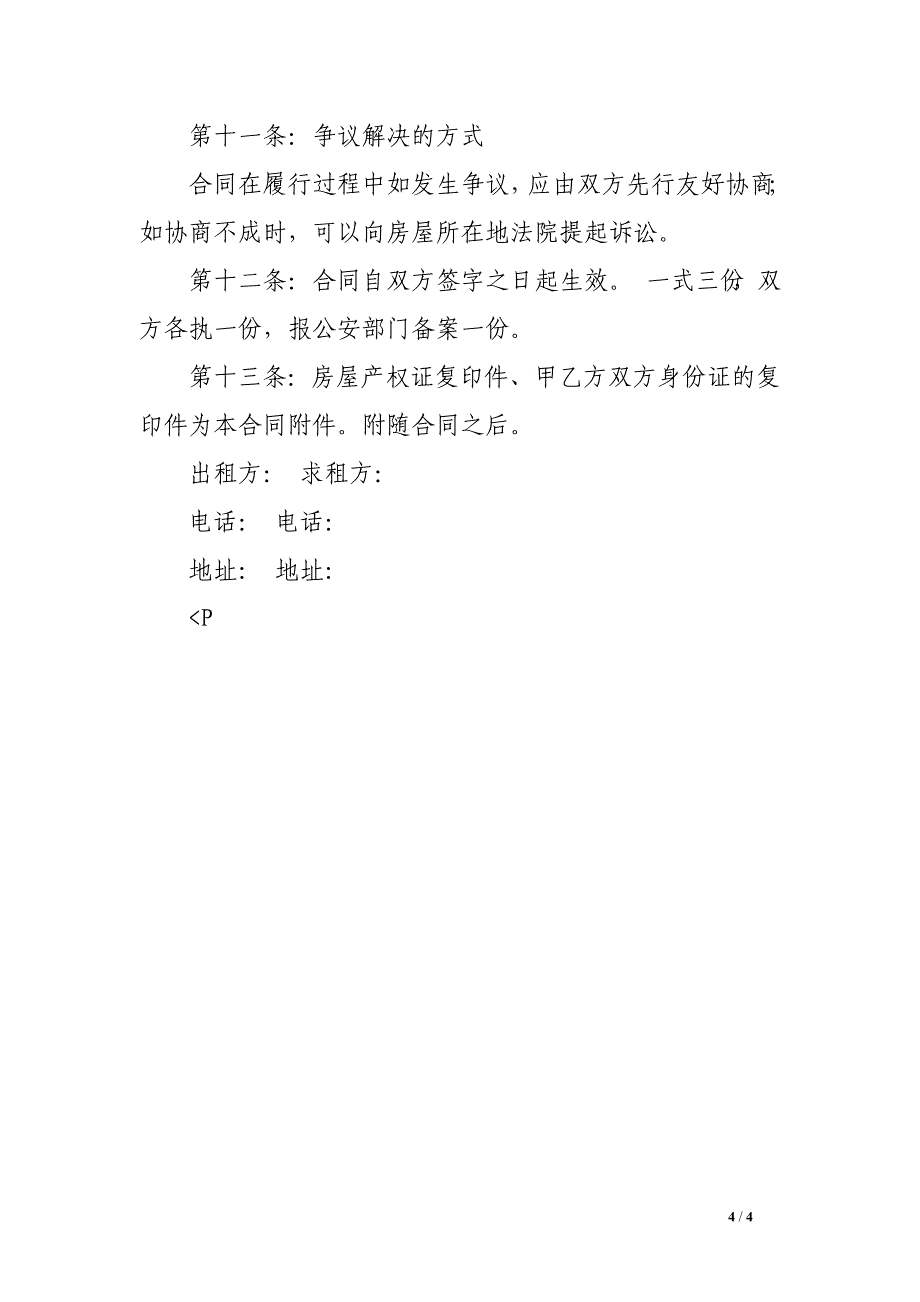 第十一条：争议解决的方式
合同在履行过程中如发生争议，应由双方先行友好协商；
如协商不成时，可以向房屋所在地法院提起诉讼。
第十二条：合同自双方签字之日起生效。 一式三份，双
方各执一份，报公安部门备案一份。
第十三条：房屋产权证复印件、甲乙方双方身份证的复
印件为本合同附件。附随合同之后。
出租方： 求租方：
电话： 电话：
地址： 地址：
<P
4 / 4